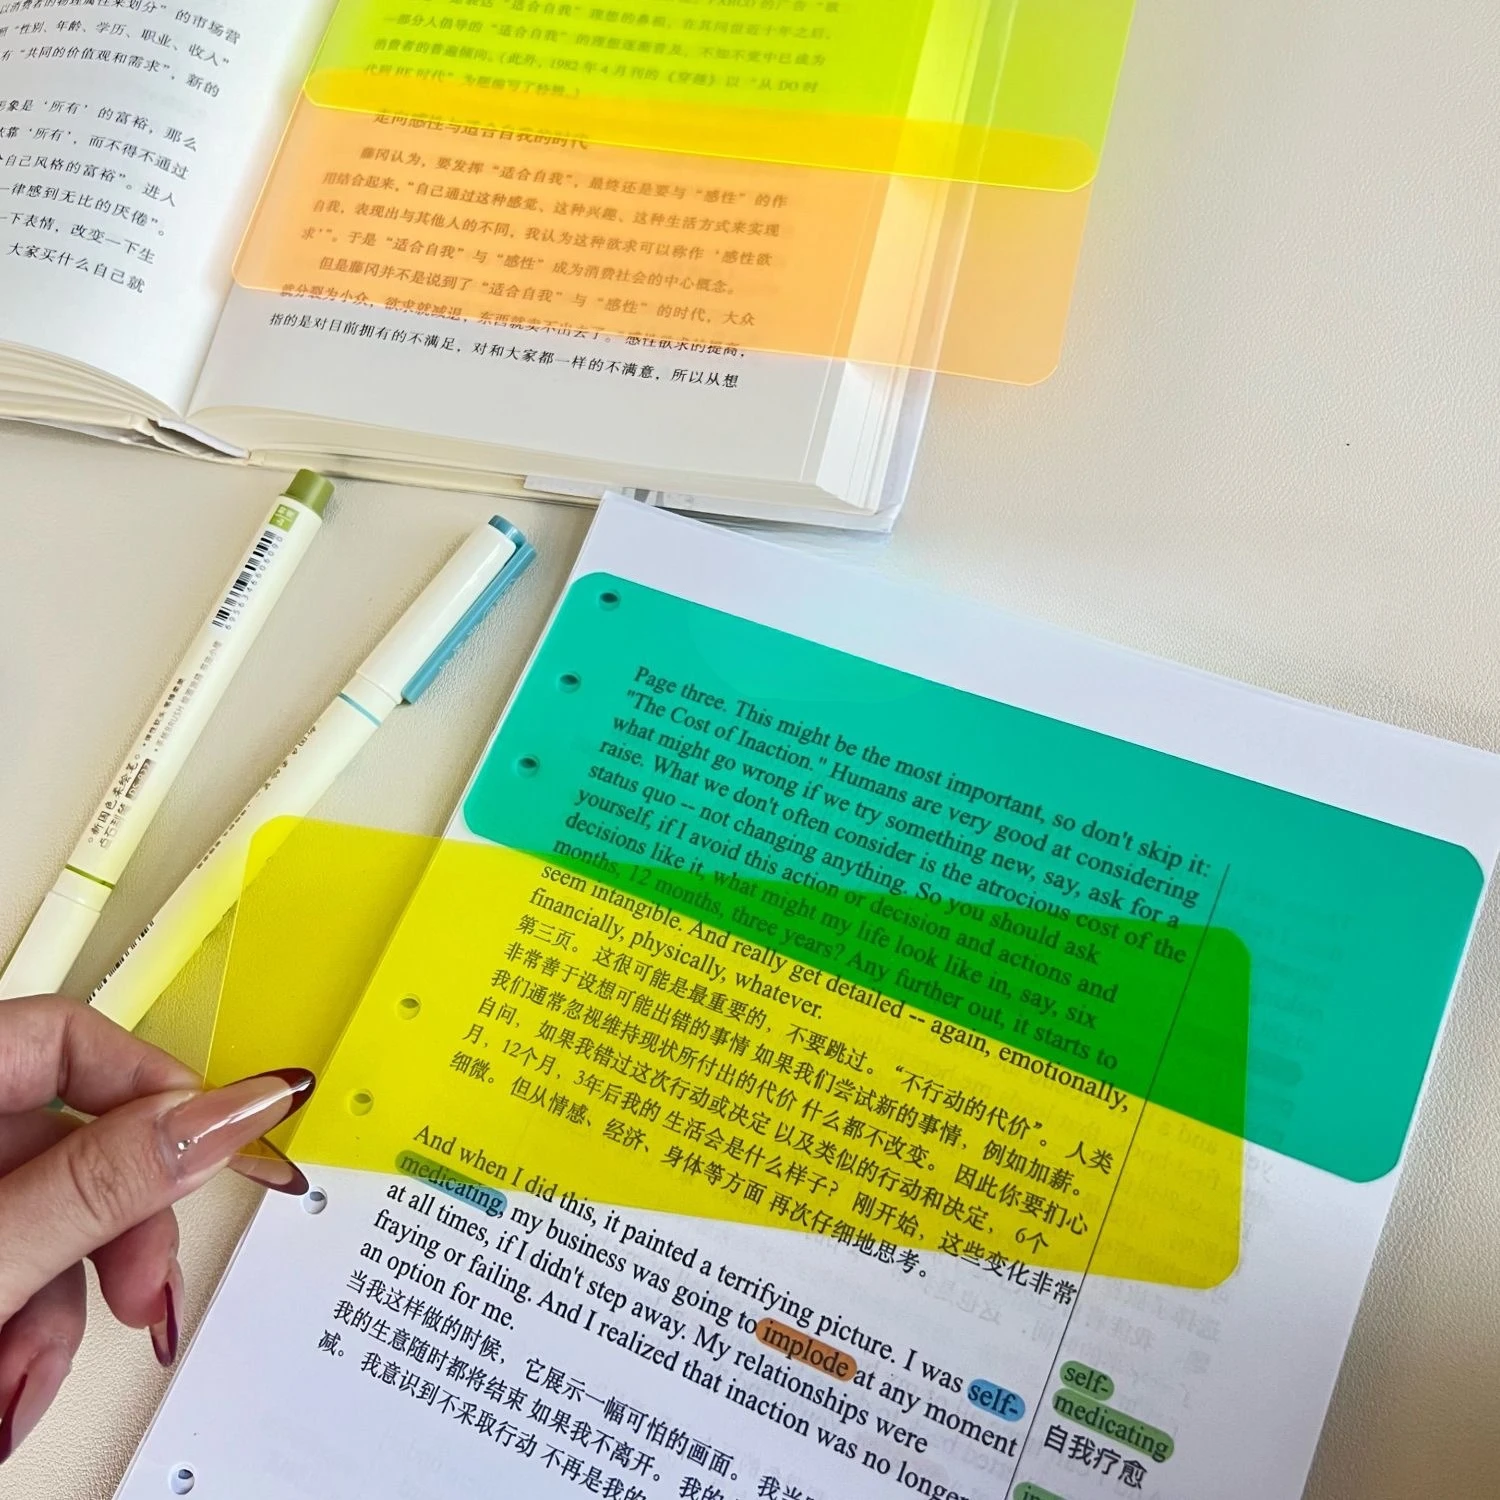 以消费者的物理属性来划分”的市场营
“性别、年龄、学历、职业、收入”
有“共同的价值观和需求”，新的
象是‘所有’的富裕，那么
靠‘所有’，而不得不通过
自己风格的富裕”。进人
一律感到无比的厌倦”。
一下表情，改变一下生
大家买什么自己就
一部分人倡导的“适合自我”的理想逐渐普及，不知不觉中已成为
消费者的普遍倾向。（此外，1982年4月刊的《穿越》以“从DO时
代到BE时代”为题编写了特辑。）
走向感性与适合自我的时代
藤冈认为，要发挥“适合自我”，最终还是要与“感性”的作
用结合起来。“自己通过这种感觉、这种兴趣、这种生活方式来实现
自我，表现出与其他人的不同，我认为这种欲求可以称作‘感性欲
求’”。于是“适合自我”与“感性”成为消费社会的中心概念。
但是藤冈并不是说到了“适合自我”与“感性”的时代，大众
就分裂为小众，欲求就减退，东西就卖不出去了。“感性欲求的提高，
指的是对目前拥有的不满足，对和大家都一样的不满意，所以从想
6956346606090
Page three. This might be the most important, so don't skip it:
"The Cost of Inaction." Humans are very good at considering
what might go wrong if we try something new, say, ask for a
raise. What we don't often consider is the atrocious cost of the
status quo -- not changing anything. So you should ask
yourself, if I avoid this action or decision and actions and
decisions like it, what might my life look like in, say, six
months, 12 months, three years? Any further out, it starts to
seem intangible. And really get detailed -- again, emotionally,
financially, physically, whatever.
第三页。 这很可能是最重要的，不要跳过。 “不行动的代价”。 人类
非常善于设想可能出错的事情 如果我们尝试新的事情，例如加薪。
我们通常忽视维持现状所付出的代价 什么都不改变。 因此你要扪心
自问， 如果我错过这次行动或决定 以及类似的行动和决定， 6个
月，12个月，3年后我的 生活会是什么样子？ 刚开始，这些变化非常
细微。 但从情感、经济、身体等方面 再次仔细地思考。
And when I did this, it painted a terrifying picture. I was self-
medicating, my business was going to implode at any moment
at all times, if I didn't step away. My relationships were
fraying or failing. And I realized that inaction was no longer
an option for me.
当我这样做的时候， 它展示一幅可怕的画面。 我当
我的生意随时都将结束 如果我不离开。 我的
减。 我意识到不采取行动 不再是我的
self-
medicating
自我疗愈